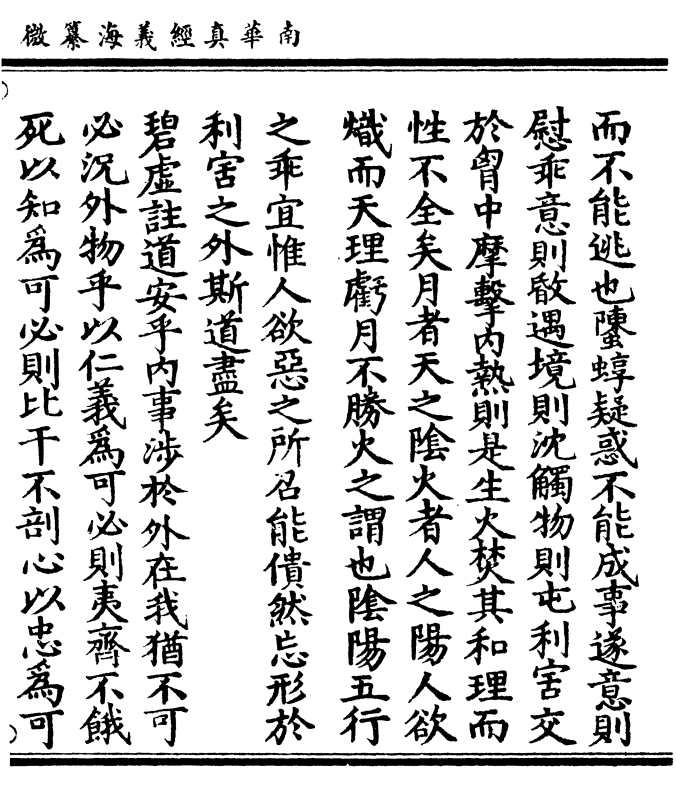 南華真經義海纂微
而不能逃也䗞蜳疑惑不能成事遂意則
慰乖意則昬遇境則沈觸物則屯利害交
於胷中摩擊内熱則是生火焚其和理而
性不全矣月者天之陰火者人之陽人欲
熾而天理虧月不勝火之謂也陰陽五行
之乖宜惟人欲惡之所召能僓然忘形於
利害之外斯道盡矣
碧虛註道安乎内事涉於外在我猶不可
必況外物乎以仁義為可必則夷齊不餓
死以知為可必則比干不剖心以忠為可